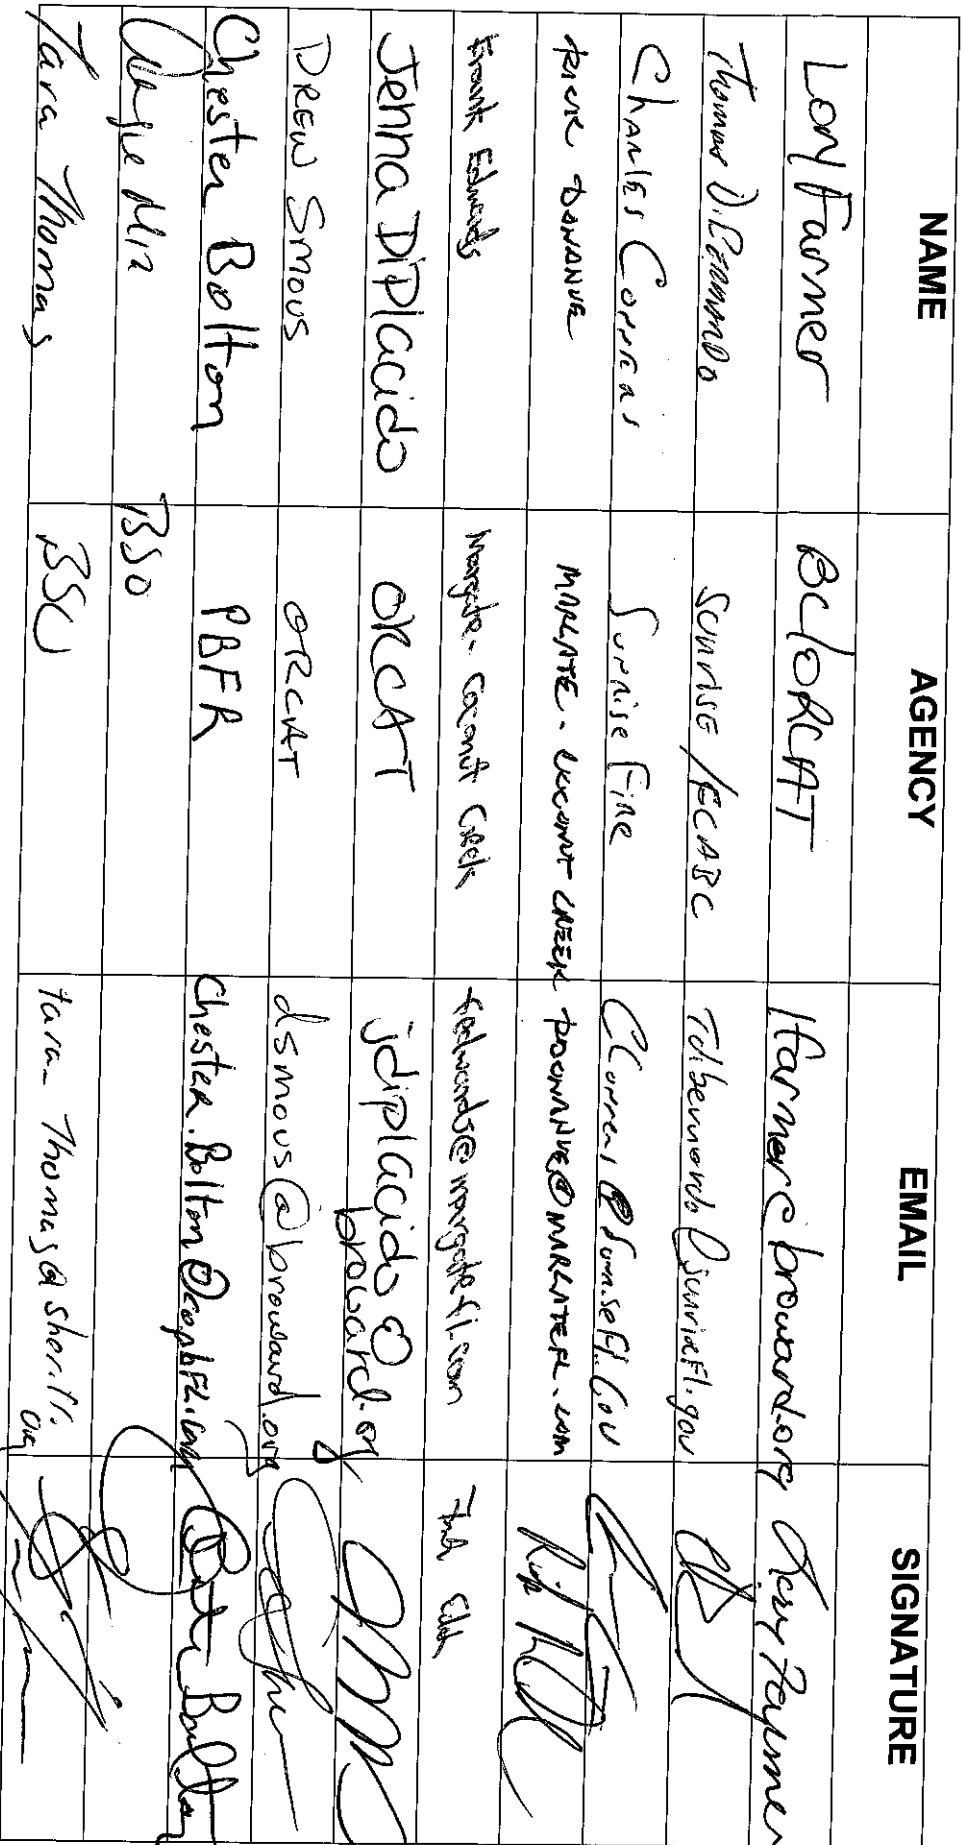 NAME AGENCY EMAIL SIGNATURE
Lory Farmer BC/ORCAT lfarmer@broward.org Lory Farmer
Thomas DiBernardo Sunrise/FCABC Tdibernardo@sunrisefl.gov
Charles Correas Sunrise Fire CCorreas@sunrisefl.gov
RICK DONAHUE MARGATE-COCONUT CREEK RDONAHUE@MARGATEFL.COM
Frank Edwards Margate-Coconut Creek fedwards@margatefl.com
Jenna DiPlacido ORCAT jdiplacido@broward.org
DREW SMOUS ORCAT dsmous@broward.org
Chester Bolton PBFR Chester.Bolton@copbfl.com Chester Bolton
Angie Mia BSO
Tara Thomas BSO tara_Thomas@sheriff.org